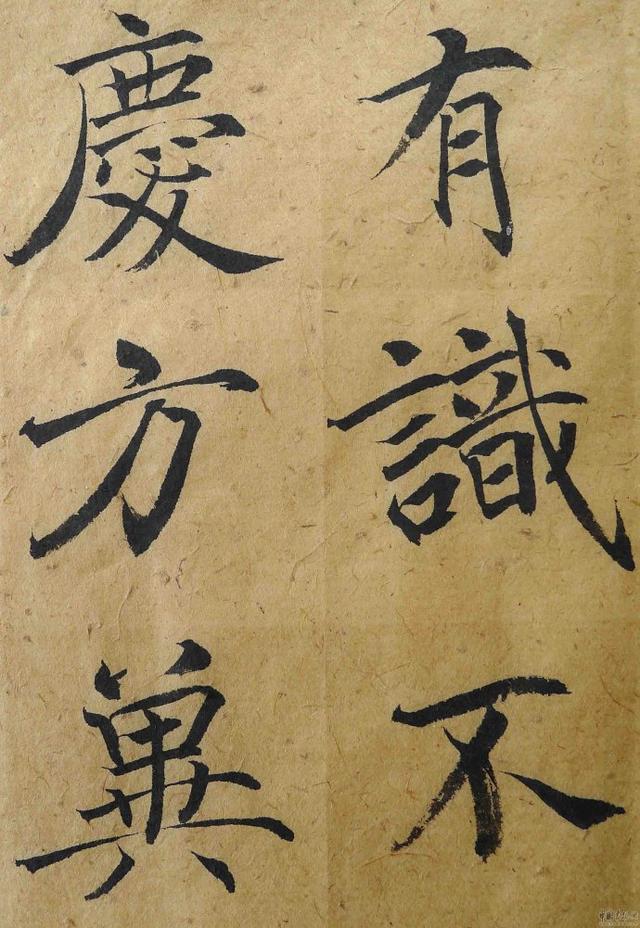 有識不
慶方冀